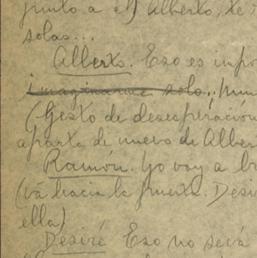 junto a el) Alberto, te
solas...
Alberto. Eso es impo
imaginarme solo..
(Gesto de desesperación
aparta de nuevo de Alber
Ramón. Yo voy a b
(va hacia la puerta. Desi
ella)
Desiré Eso no será